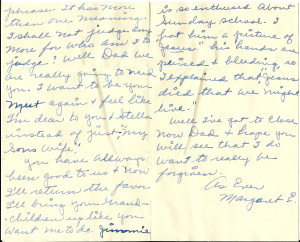 phrase. It has more
than one meaning.
I shall not judge any
more for who am I to
judge? Well Dad we
are really going to need
you. I want to be your
Must again & feel like
I'm dear to you & Stella
instead of just "my
Sons Wife."
You have allways
been good to us & now
I'll return the favor
I'll bring your Grand-
children up like you
want me to do. Jimmie
is so enthused about
Sunday School. I
got him a picture of
Jesus" his hands are
pierced & bleeding, so
I explained that Jesus
died that we might
live."
Well I've got to close
now Dad & hope you
will see that I do
want to really be
forgiven.
As Ever
Margaret E.